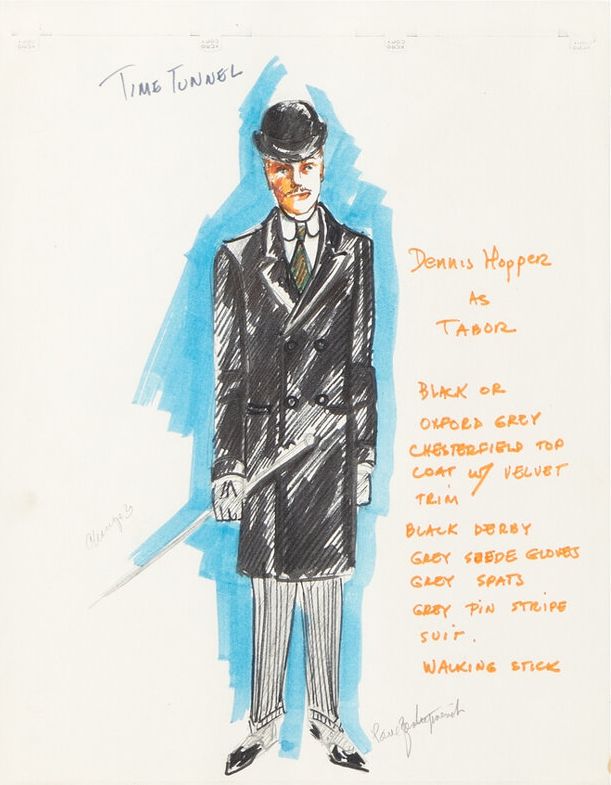 TIME TUNNEL
Dennis Hopper
AS
TABOR
BLACK OR
OXFORD GREY
CHESTERFIELD TOP
COAT W/ VELVET
TRIM
BLACK DERBY
GREY SUEDE GLOVES
GREY SPATS
GREY PIN STRIPE
SUIT.
WALKING STICK
Change 3
Paul Zastupnevich